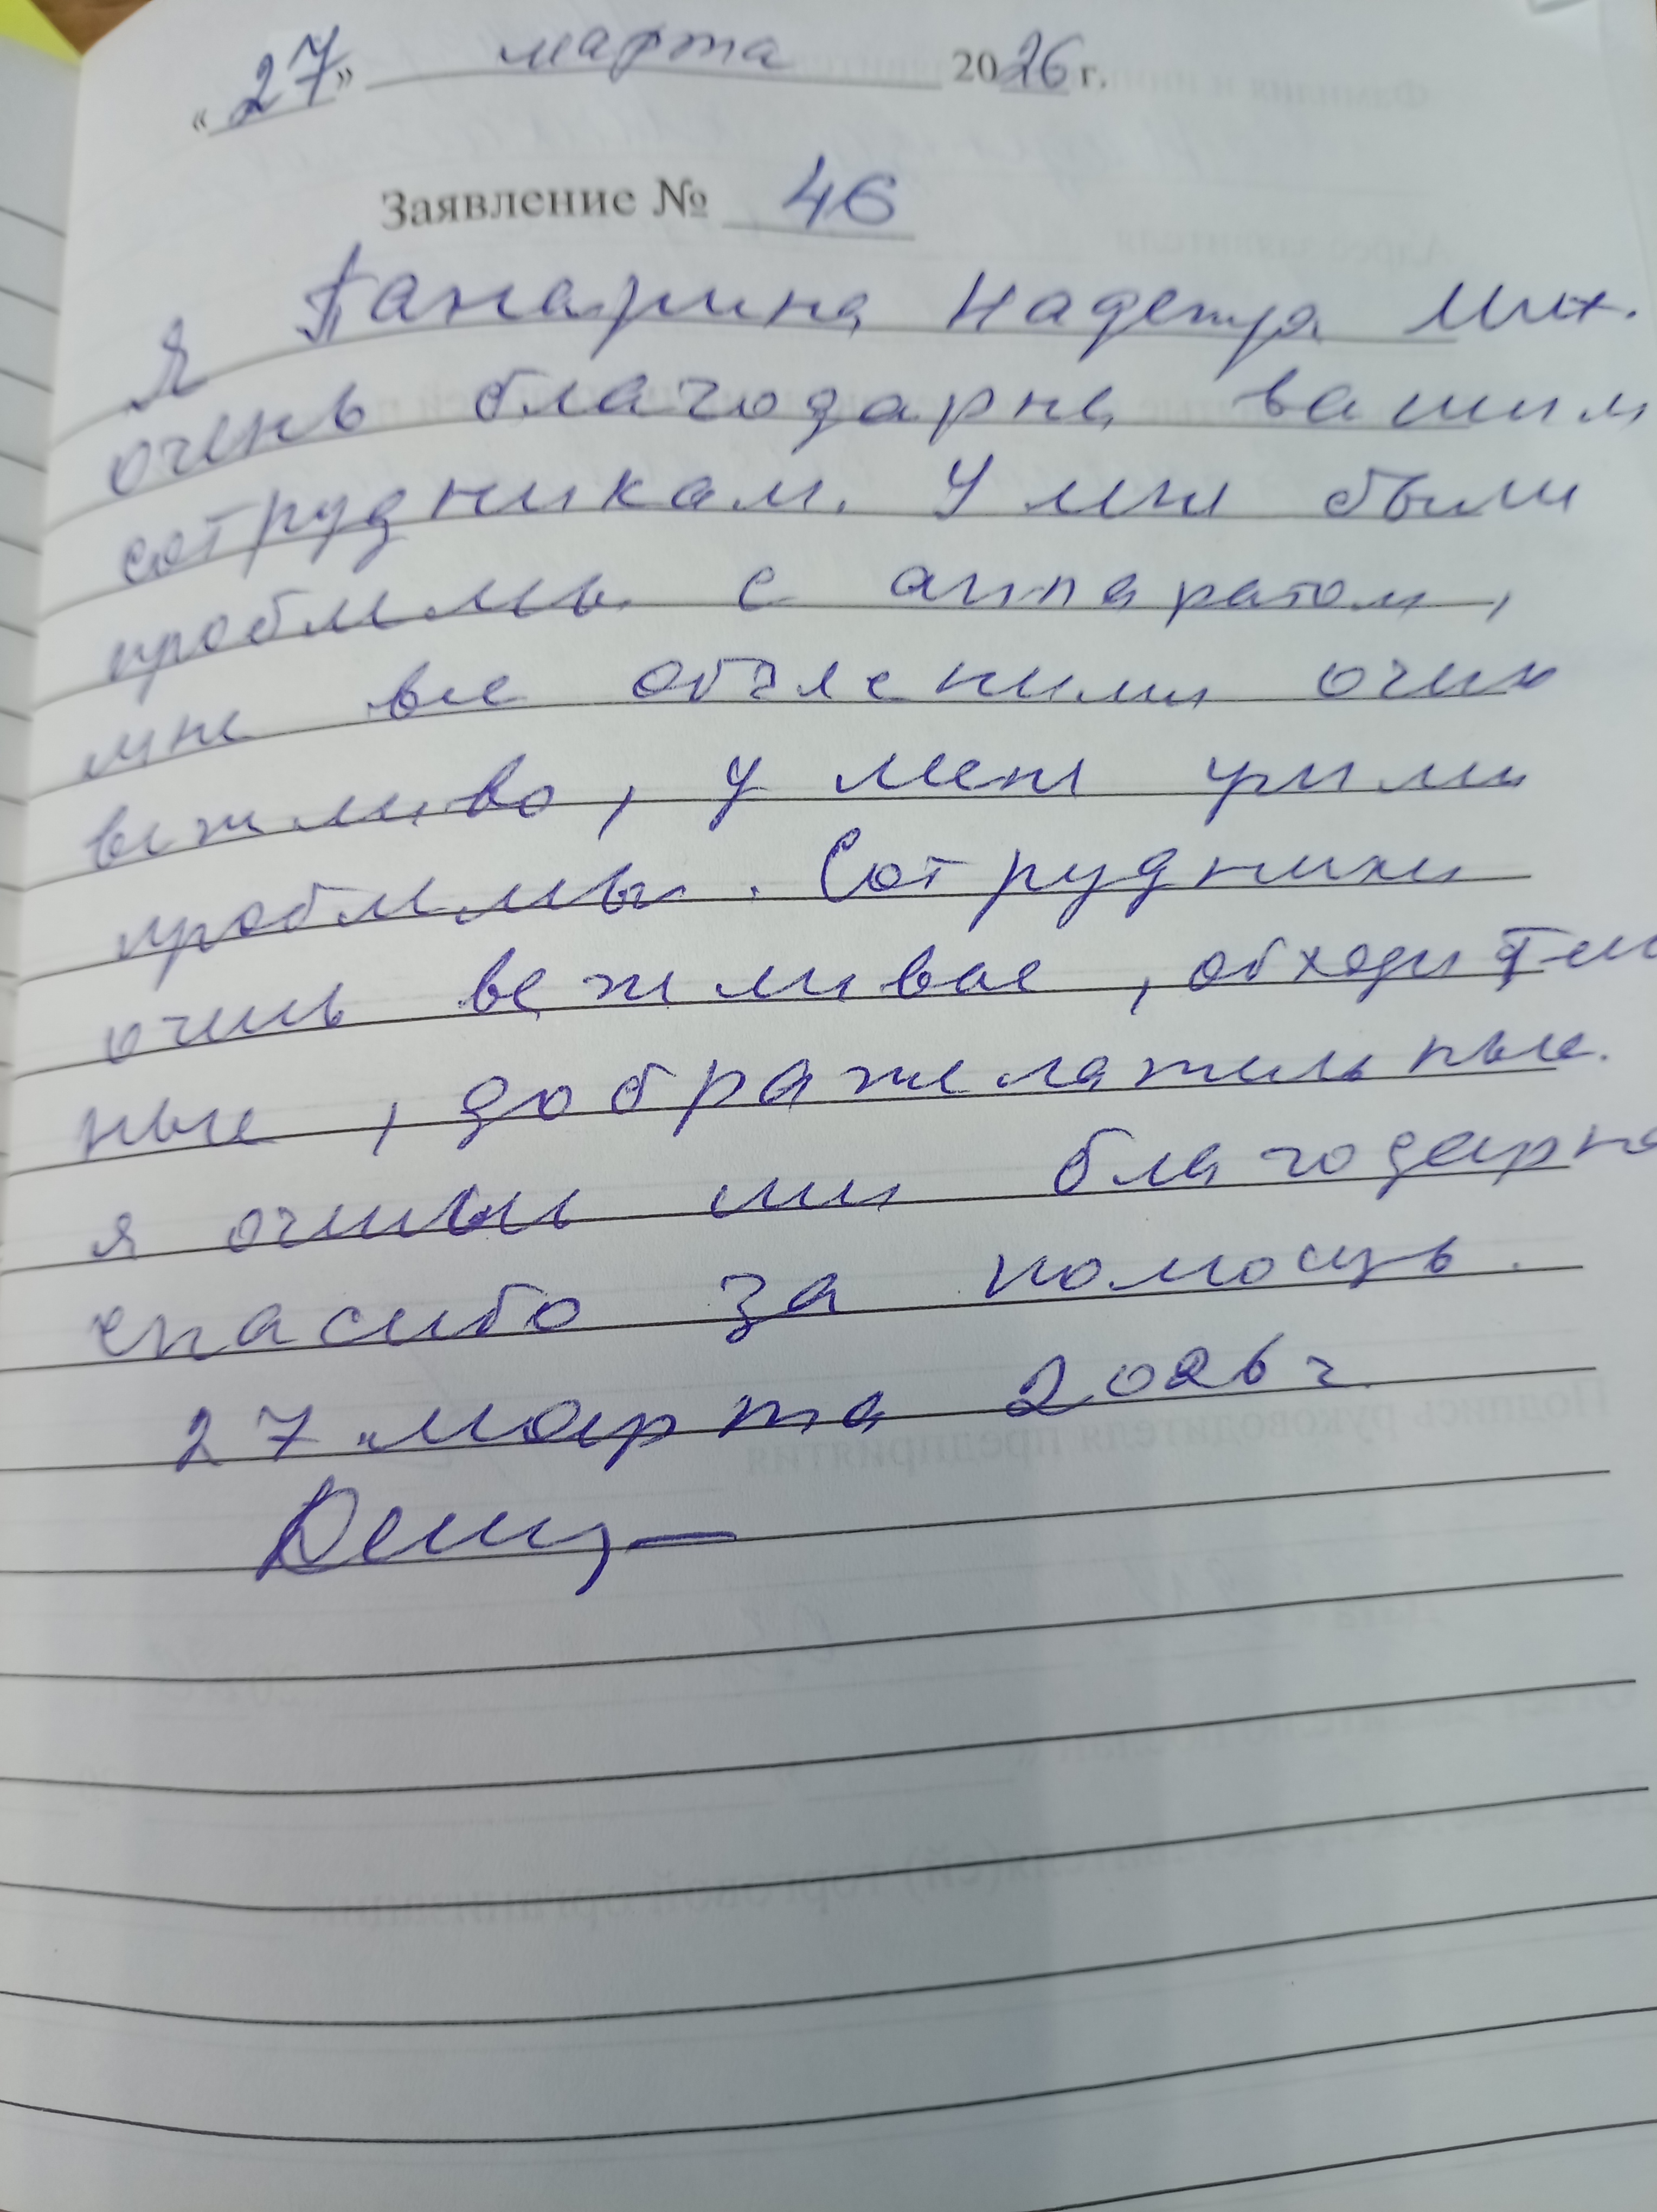 «27» марта 2026 г.
Заявление № 46
Я Панарина Надежда Мих.
очень благодарна вашим
сотрудникам. У мня были
проблемы с аппаратом,
мне все обьяснили очнь
вежливо, у меня
проблемы. Сотрудники
очень вежливые, обходител
ные, дображелательные.
я очинь им благодарна
спасибо за помощь.
27 марта 2026 г.